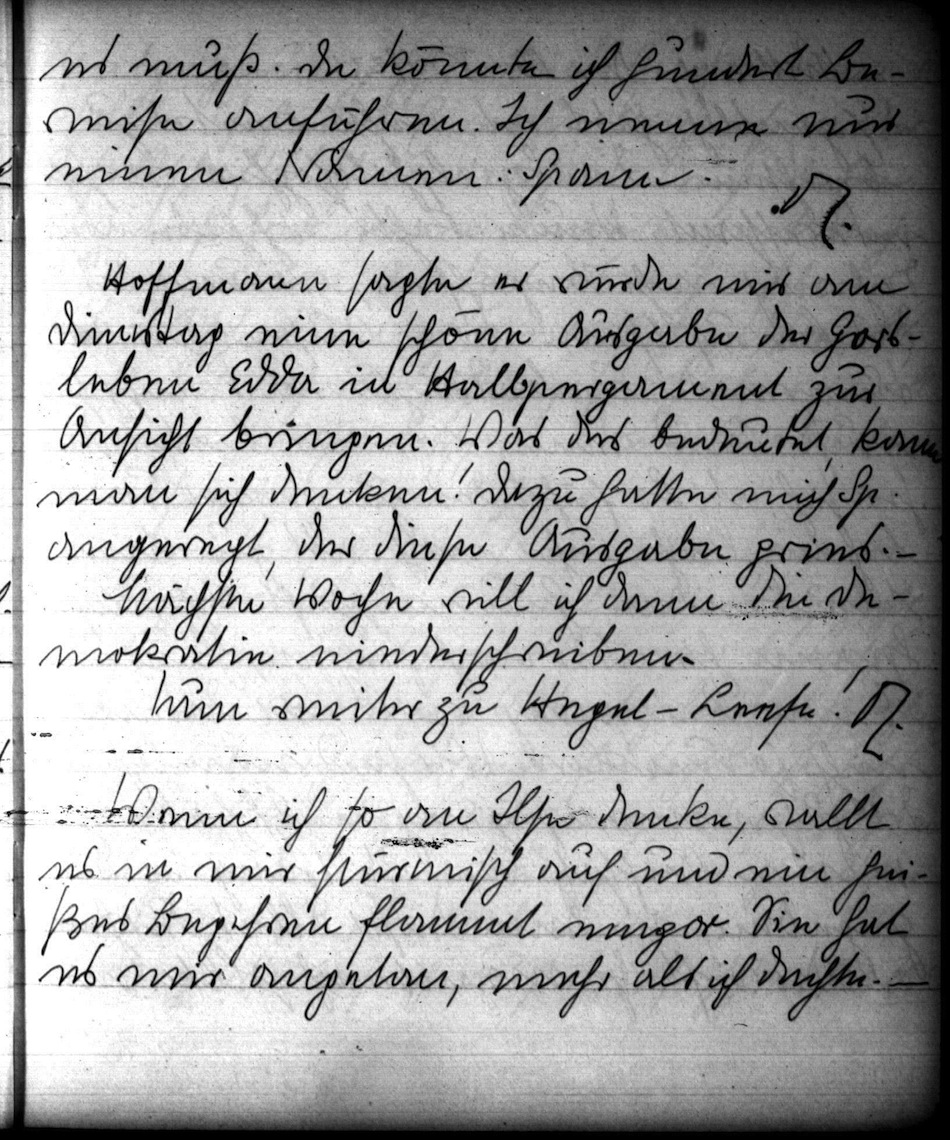 es muß. Da könnte ich hundert Be-
weise anführen. Ich nenne nur
einen Namen: Spann.
Hoffmann sagte er würde mir am
Dienstag eine schöne Ausgabe der Gors-
leben Edda in Halbpergament zur
Ansicht bringen. Was das bedeutet, kann
man sich denken! Dazu hatte mich Sp.
angeregt, der diese Ausgabe pries.–
Nächste Woche will ich dann die De-
mokratie niederschreiben.
Nun weiter zu Hegel – Leese!
Wenn ich so an Ilse denke, wallt
es in mir stürmisch auf und ein hei-
ßes Begehren flammt empor. Sie hat
es mir angetan, mehr als ich dachte.—